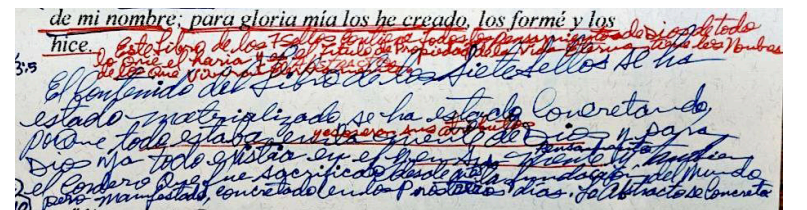 de mi nombre; para gloria mía los he creado, los formé y los
hice. Este Libro de los 7 Sellos contiene todos los pensamientos de Dios de todo
lo que el haria y es el Titulo de Propiedad de la Vida Eterna tiene los Nombres
de los que
3:5
El Contenido del Libro de los Siete Sellos se ha
estado materializado, se ha estado Concretando,
porque todo estaba en la mente de Dios y para
y esos eran sus atributos
Dios ya todo existía en el
pensamiento
el Cordero que fue Sacrificado desde la fundación del Mundo
pero manifestado, concretado en los Postreros dias. Lo Abstracto se Concreta